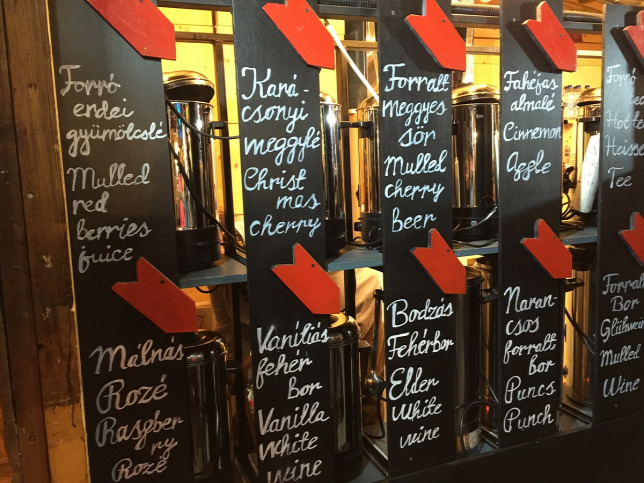 Forró
erdei
gyümölcslé
Mulled
red
berries
juice
Kará-
csonyi
meggylé
Christ
mas
cherry
Forralt
meggyes
sör
Mulled
cherry
beer
Fahéjas
almalé
Cinnemon
Apple
Forró
Tea
Hot tea
Heisse
Tee
Málnás
Rozé
Raspber
ry
Rozé
Vaníliás
fehér
bor
Vanilla
White
wine
Bodzás
Fehérbor
Elder
White
wine
Naran-
csos
forralt
bor
Puncs
Punch
Forralt
Bor
Glühwein
Mulled
Wine